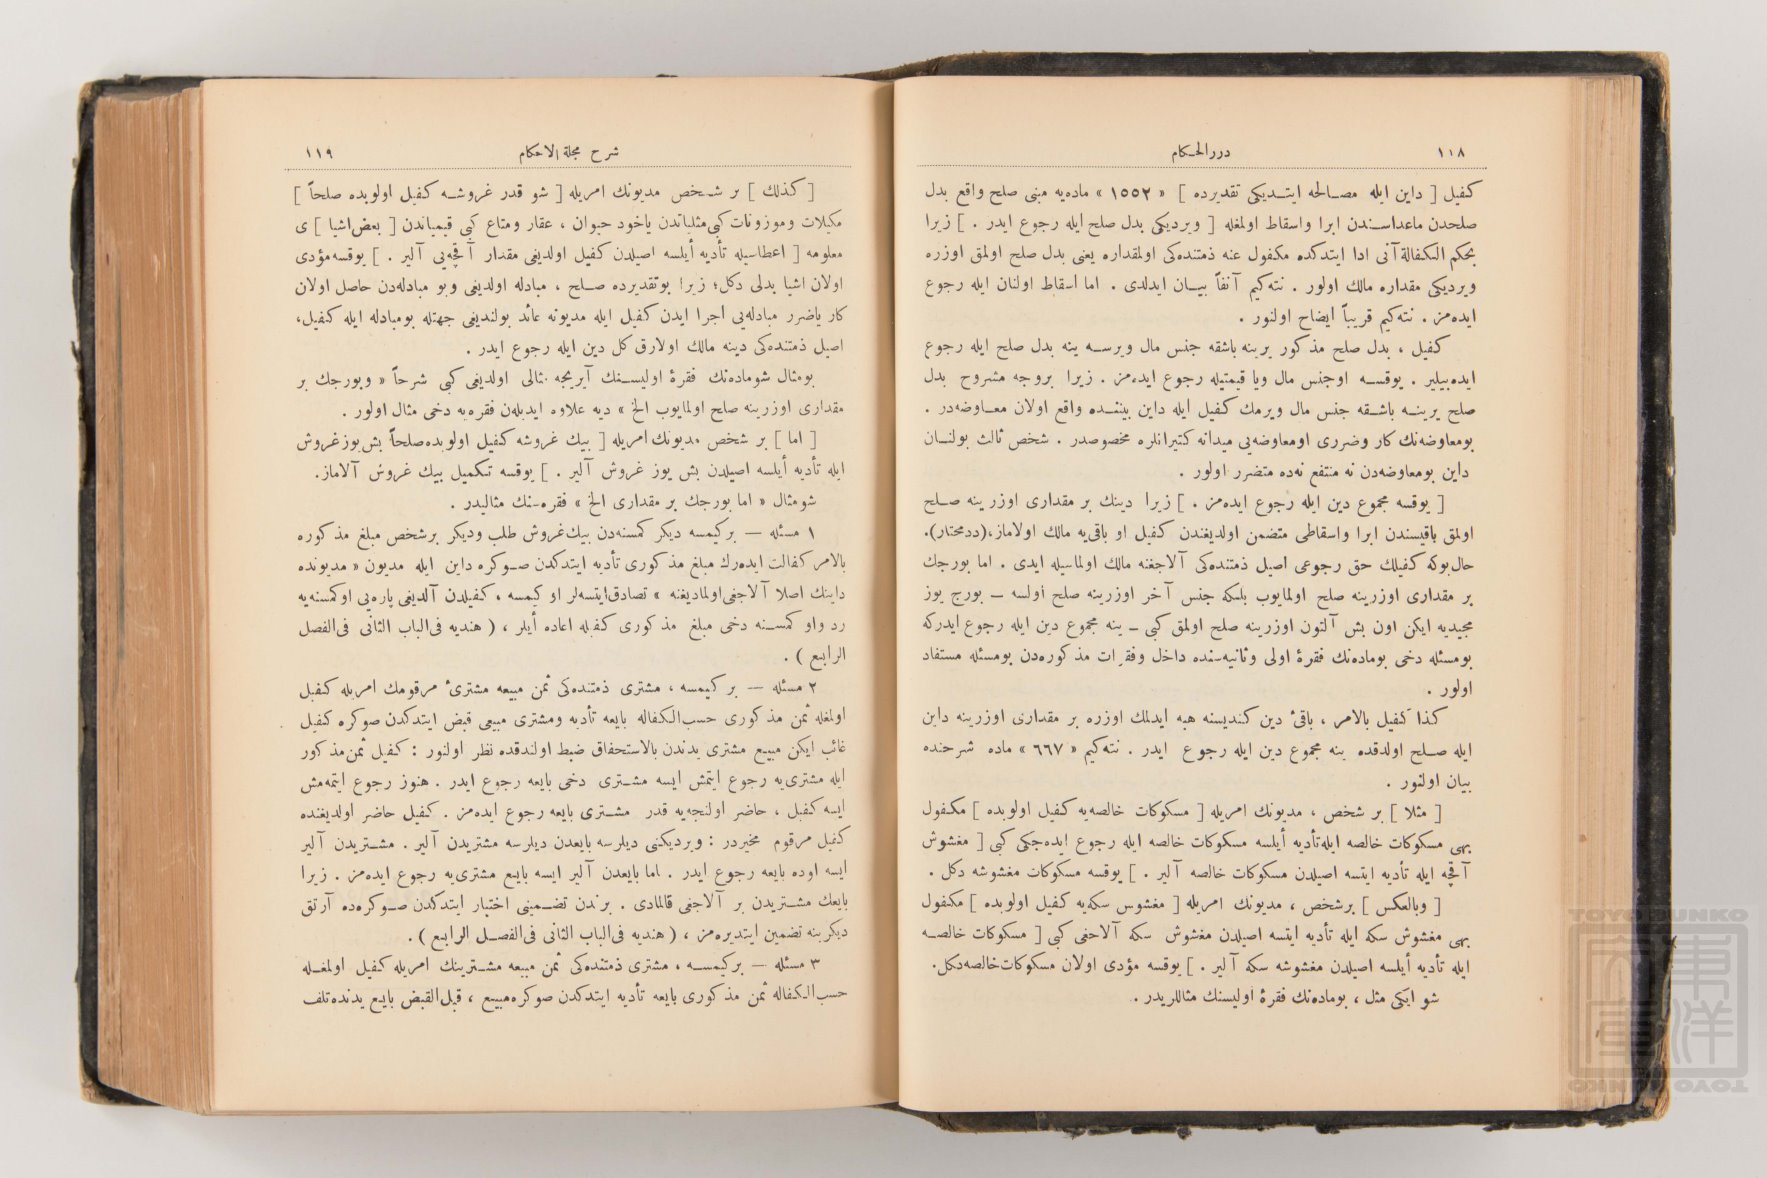 ١١٨
دررالحكام
كفيل [ داين ايله مصالحه ايتديكى تقديرده ] « ١٥٥٢ » ماده‌يه مبنى صلح واقع بدل
صلحدن ماعداسندن ابرا واسقاط اولمغله [ ويرديكى بدل صلح ايله رجوع ايدر . ] زيرا
بحكم الكفالة آنى ادا ايتدكده مكفول عنه ذمتنده‌كى اولمقداره يعنى بدل صلح اولمق اوزره
ويرديكى مقداره مالك اولور . نته‌كيم آنفاً بيان ايدلدى . اما اسقاط اولنان ايله رجوع
ايده‌مز . نته‌كيم قريباً ايضاح اولنور .
كفيل ، بدل صلح مذكور يرينه باشقه جنس مال ويرسه ينه بدل صلح ايله رجوع
ايده‌بيلير . يوقسه اوجنس مال ويا قيمتيله رجوع ايده‌مز . زيرا بروجه مشروح بدل
صلح يرينه باشقه جنس مال ويرمك كفيل ايله داين بيننده واقع اولان معاوضه‌در .
بومعاوضه‌نك كار وضررى اومعاوضه‌يى ميدانه كتيرانلره مخصوصدر . شخص ثالث بولنان
داين بومعاوضه‌دن نه منتفع نه‌ده متضرر اولور .
[ يوقسه مجموع دين ايله رجوع ايده‌مز . ] زيرا دينك بر مقدارى اوزرينه صلح
اولمق باقيسندن ابرا واسقاطى متضمن اولديغندن كفيل او باقى‌يه مالك اولاماز،(ددمحتار).
حال‌بوكه كفيلك حق رجوعى اصيل ذمتنده‌كى آلاجغنه مالك اولماسيله ايدى . اما بورجك
بر مقدارى اوزرينه صلح اولمايوب بلكه جنس آخر اوزرينه صلح اولسه – بورج يوز
مجيديه ايكن اون بش آلتون اوزرينه صلح اولمق كبى – ينه مجموع دين ايله رجوع ايدركه
بومسئله دخى بوماده‌نك فقرهٔ اولى وثانيه‌سنده داخل وفقرات مذكوره‌دن بومسئله مستفاد
اولور .
كذا كفيل بالامر ، باقئ دين كنديسنه هبه ايدلمك اوزره بر مقدارى اوزرينه داين
ايله صلح اولدقده ينه مجموع دين ايله رجوع ايدر . نته‌كيم « ٦٦٧ » ماده شرحنده
بيان اولنور .
[ مثلا ] بر شخص ، مديونك امريله [ مسكوكات خالصه‌يه كفيل اولوبده ] مكفول
بهى مسكوكات خالصه ايله‌تأديه أيلسه مسكوكات خالصه ايله رجوع ايده‌جكى كبى [ مغشوش
آقچه ايله تأديه ايتسه اصيلدن مسكوكات خالصه آلير . ] يوقسه مسكوكات مغشوشه دكل .
[ وبالعكس ] برشخص ، مديونك امريله [ مغشوش سكه‌يه كفيل اولوبده ] مكفول
بهى مغشوش سكه ايله تأديه ايتسه اصيلدن مغشوش سكه آلاجغى كبى [ مسكوكات خالصه
ايله تأديه أيلسه اصيلدن مغشوشه سكه آلير . ] يوقسه مؤدى اولان مسكوكات‌خالصه‌دكل.
شو ايكى مثل ، بوماده‌نك فقرهٔ اوليسنك مثاللريدر .
شرح مجلة الاحكام
١١٩
[ كذلك ] بر شخص مديونك امريله [ شو قدر غروشه كفيل اولوبده صلحاً ]
مكيلات وموزونات كبى‌مثلياتدن ياخود حيوان ، عقار ومتاع كبى قيمياتدن [ بعض‌اشيا ] ى
معلومه [ اعطاسيله تأديه أيلسه اصيلدن كفيل اولديغى مقدار آقچه‌يى آلير . ] يوقسه‌مؤدى
اولان اشيا بدلى دكل؛ زيرا بوتقديرده صلح ، مبادله اولديغى وبو مبادله‌دن حاصل اولان
كار ياضرر مبادله‌يى اجرا ايدن كفيل ايله مديونه عائد بولنديغى جهتله بومبادله ايله كفيل،
اصيل ذمتنده‌كى دينه مالك اولارق كل دين ايله رجوع ايدر .
بومثال شوماده‌نك فقرهٔ اوليسنك آيريجه مثالى اولديغى كبى شرحاً « وبورجك بر
مقدارى اوزرينه صلح اولمايوب الخ » ديه علاوه ايديلن فقره‌يه دخى مثال اولور .
[ اما ] بر شخص مديونك امريله [ بيك غروشه كفيل اولوبده‌صلحاً بش‌يوزغروش
ايله تأديه أيلسه اصيلدن بش يوز غروش آلير . ] يوقسه تكميل بيك غروش آلاماز.
شومثال « اما بورجك بر مقدارى الخ » فقره‌سنك مثاليدر .
١ مسئله — بركيمسه ديكر كمسنه‌دن بيك‌غروش طلب وديكر برشخص مبلغ مذكوره
بالامر كفالت ايده‌رك مبلغ مذكورى تأديه ايتدكدن صوكره داين ايله مديون « مديونده
داينك اصلا آلاجغى‌اولماديغنه » تصادق‌ايتسه‌لر او كيمسه ، كفيلدن آلديغى پاره‌يى اوكمسنه‌يه
رد واو كمسنه دخى مبلغ مذكورى كفيله اعاده أيلر ، ( هنديه فى‌الباب الثانى فى‌الفصل
الرابع ) .
٢ مسئله — بر كيمسه ، مشترى ذمتنده‌كى ثمن مبيعه مشترئ مرقومك امريله كفيل
اولمغله ثمن مذكورى حسب‌الكفاله بايعه تأديه ومشترى مبيعى قبض ايتدكدن صوكره كفيل
غائب ايكن مبيع مشترى يدندن بالاستحقاق ضبط اولندقده نظر اولنور : كفيل ثمن‌مذكور
ايله مشترى‌يه رجوع ايتمش ايسه مشترى دخى بايعه رجوع ايدر . هنوز رجوع ايتمه‌مش
ايسه كفيل ، حاضر اولنجه‌يه قدر مشترى بايعه رجوع ايده‌مز . كفيل حاضر اولديغنده
كفيل مرقوم مخيردر : ويرديكنى ديلرسه بايعدن ديلرسه مشتريدن آلير . مشتريدن آلير
ايسه اوده بايعه رجوع ايدر . اما بايعدن آلير ايسه بايع مشترى‌يه رجوع ايده‌مز . زيرا
بايعك مشتريدن بر آلاجغى قالمادى . برندن تضمينى اختيار ايتدكدن صوكره‌ده آرتق
ديكرينه تضمين ايتديره‌مز ، ( هنديه فى‌الباب الثانى فى‌الفصل الرابع ) .
٣ مسئله — بركيمسه ، مشترى ذمتنده‌كى ثمن مبيعه مشترينك امريله كفيل اولمغله
حسب‌الكفاله ثمن مذكورى بايعه تأديه ايتدكدن صوكره‌مبيع ، قبل‌القبض بايع يدنده‌تلف
TOYO BUNKO
東洋文庫
TOYO BUNKO